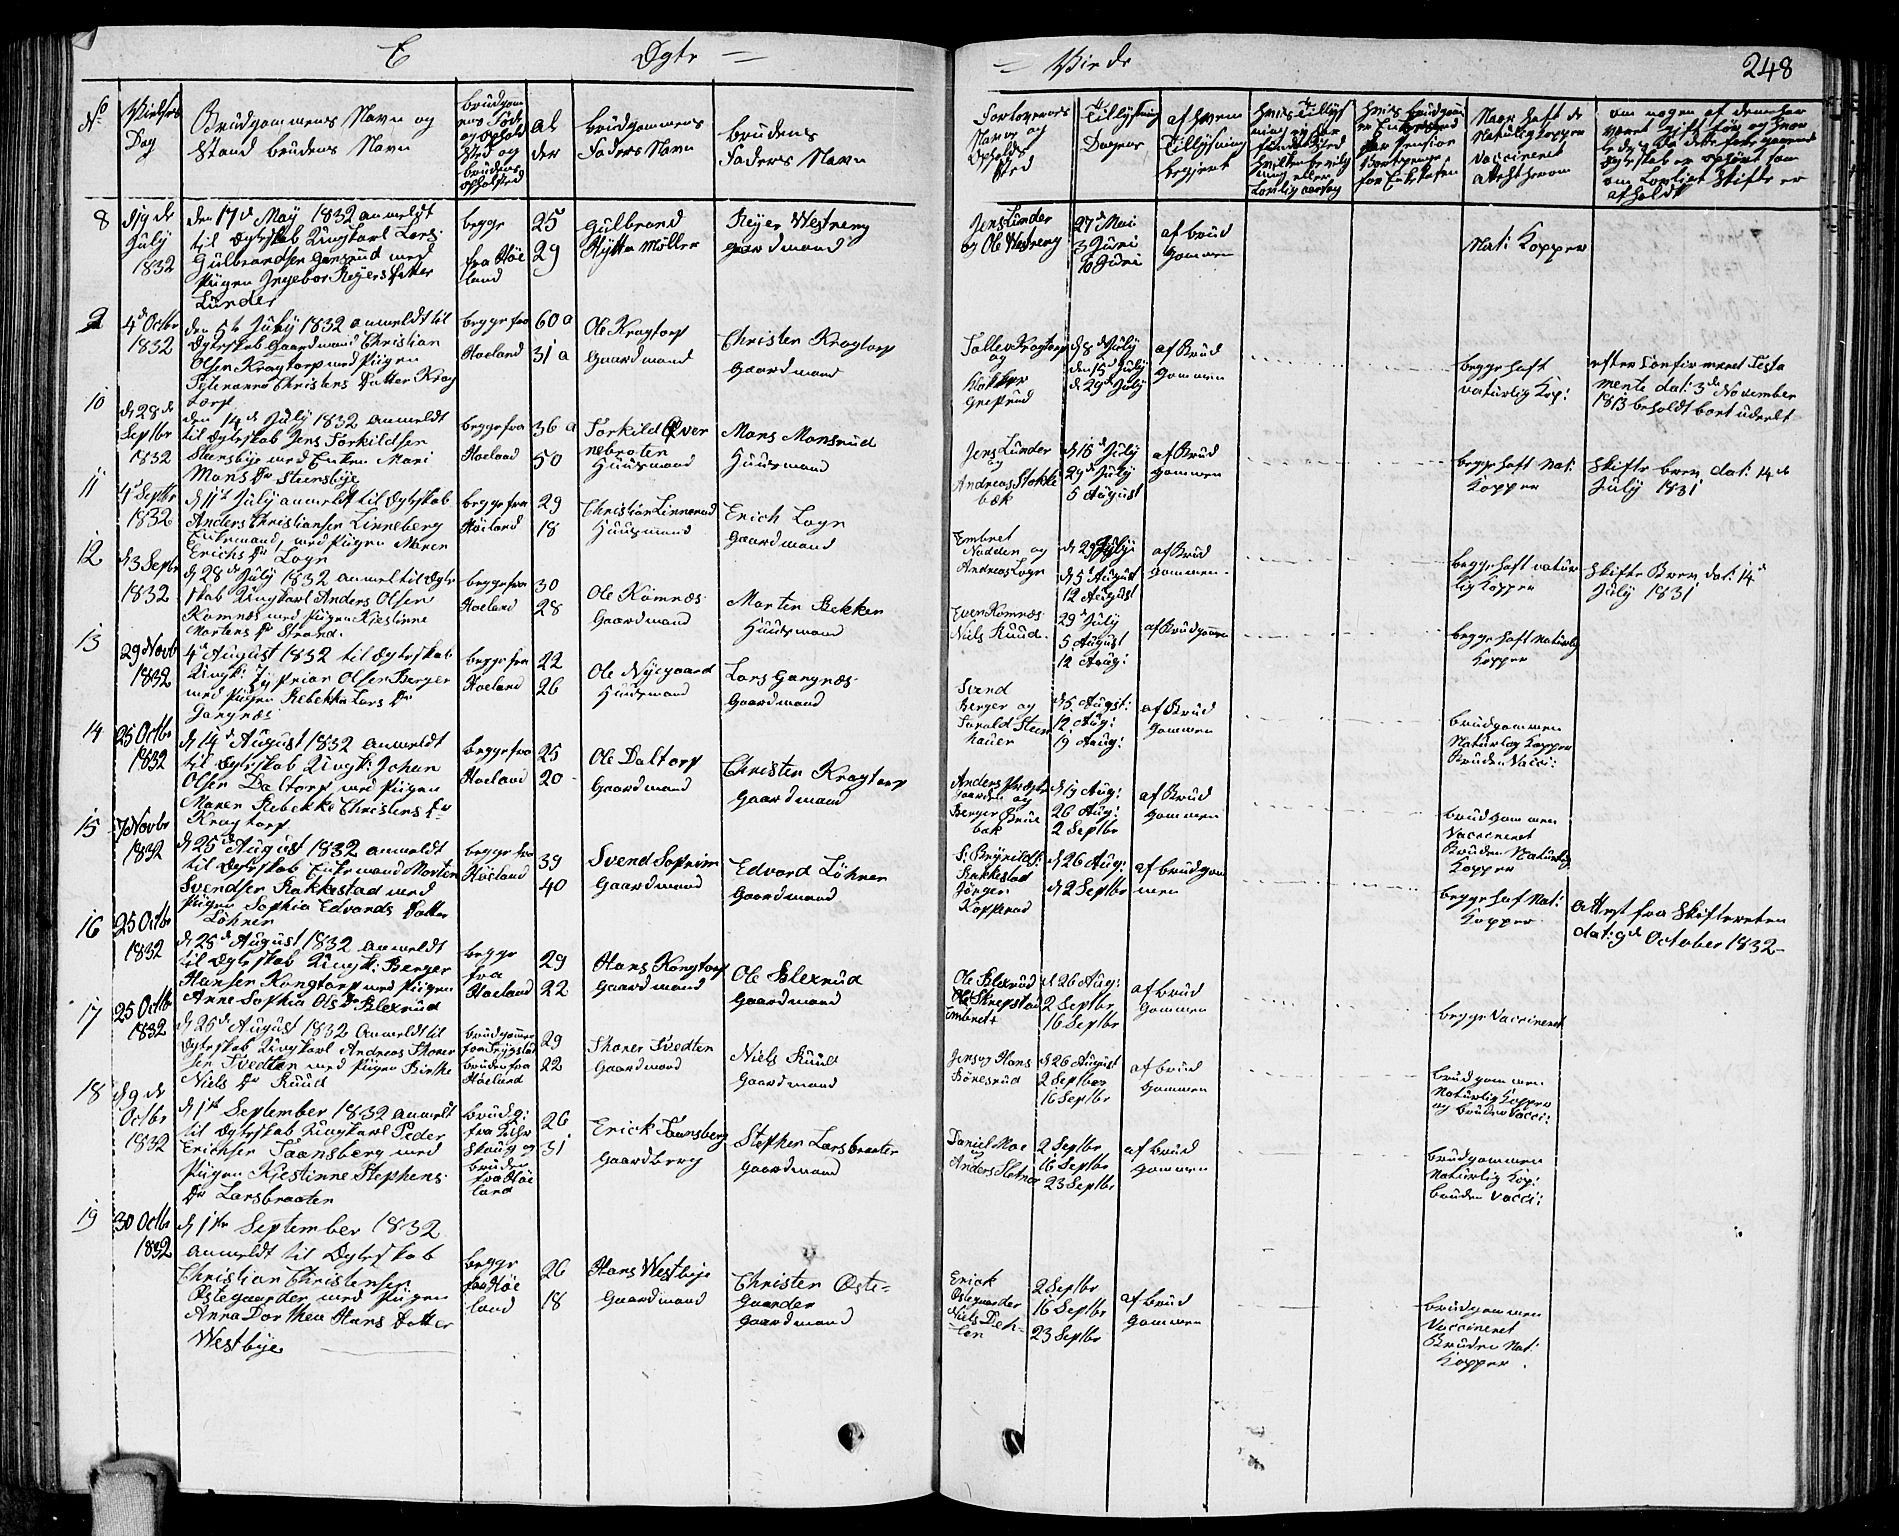 E
Ægte =
= Viede
248
No
Vielses Dag
Brudgommens Navn og
Stand brudens Navn
brudgom
mens Føde
og ophold
sted og
brudens
opholsted
al
der
brudgommens
Faders Navn
brudens
Faders Navn
Forlovernes
Navne og
opholds
sted
Tillysnings
Dagene
af hvem
Tillysning
begjert
Naar haft de
Naturlig Kopper
Vaccineret
attest herom
om nogen af dem har
været gift før
8
d 19 de
July
1832
den 17d May 1832 anmeldt
til Ægteskab Ungkarl Lars
Gulbrandsen Gansrud med
Pigen Ingebor Reiers Datter
Lunder
begge
fra Høe
land
25
29
Gulbrand
Hytte Møller
Reyer Westreng
gaardmand
Jens Lunder
og Ole Westreng
27d Mai
3 Juni
6 Juni
af brud
gommen
Nat: Kopper
9
4d Octbr
1832
den 5te July 1832 anmeldt til
Ægteskab Gaardmand Christian
Olsen Kragtorp med Pigen
Christens Datter Krag
torp
begge fra
Høeland
60 a
31 a
Ole Kragtorp
Gaardmand
Christen Kragtorp
Gaardmand
Tollev Kragtorp
og
d 8de July
den 15d July
d 29d July
af Brud
gommen
begge haft
naturlig Kop:
efter Confirmeret Testa
mente dat: 3de November
1813 beholdt boet udeelt
10
d 28 de
Septbr
1832
den 14d July 1832 anmeldt
til Ægteskab Jens Torkildsen
Stensbye med Enken Mari
Mons Dr Steensbye
begge fra
Høeland
36 a
50
Torkild Qver
nebroten
Huusmand
Mons Monsrud
Huusmand
Jens Lunder
og
Andreas Stokke
bæk
d 15d July
29d July
5 August
af Brud
gommen
begge haft Nat:
Kopper
Skifte brev dat: 14de
July 1831
11
4d Septbr
1832
d 11te July anmeldt til Ægteskab
Anders Christiansen Linneberg
Enkemand, med Pigen Maren
Erichs Dr Logn
begge fra
Høiland
29
18
Christian Linnerud
Huusmand
Erich Logn
Gaardmand
Embret
Nadden og
Andreas Logn
d 29 July
d 5 August
12 August
af Brud
gommen
begge haft natur
lig Kopper
Skifte Brev dat: 14d
July 1831
12
d 3 Septbr
1832
d 28d July 1832 anmel til Ægte
skab Ungkarl Anders Olsen
Komnæs med Pigen Kjestinne
Mortens Dr Strand.
begge fra
Høeland
30
28
Ole Komnæs
Gaardmand
Morten Bekken
Huusmand
Even Komnæs
Niels Ruud.
29d July
5 August
12 Aug:
af Brudgommen
begge haft Naturlig
Kopper
13
29 Novbr
1832
4d August 1832 til Ægteskab
Ungk: Zyprian Olsen Berger
med Pigen Rebekka Lars Dr
Gangnæs
begge fra
Høeland
22
26
Ole Nygaard
Huusmand
Lars Gangnæs
Gaardmand
Svend
Berger og
Harald Steen
hauer
d 5 August:
12 Aug:
19 Aug:
af Brud
gommen
brudgommen
Naturlig Kopper
Bruden Vacci:
14
25 Octbr
1832
d 14d August 1832 anmeldt
til Ægteskab Ungk: Johan
Olsen Daltorp med Pigen
Maren Rebekka Christens Dr
Kragtorp
begge fra
Høeland
25
20
Ole Daltorp
Gaardmand
Christen Kragtorp
Gaardmand
Anders Præste
gaarden og
Berger Brue
bak
d 19 Aug:
26 Aug:
2 Septbr
af Brud
gommen
brudgommen
Vaccineret
Bruden Naturlig
Kopper
15
7 Novbr
1832
d 25d August 1832 anmeldt
til Ægteskab Enkemand Morten
Svendsen Rakkestad med
Pigen Sophia Edvards Datter
Löhner
begge fra
Høeland
39
40
Svend Soprim
Gaardmand
Edvard Löhner
Gaardmand
Rakkestad
Jørgen
Kopperud
d 26 Aug:
d 2 Septbr
af brudgom
men
begge haf Nat:
Kopper
Attest fra Skifteretten
dat: 9d October 1832
16
25 Octbr
1832
d 25d August 1832 anmeldt
til Ægteskab Ungk: Berger
Hansen Kongtorp med Pigen
Anne Sophia Ols Dr Blexrud
begge
fra
Høeland
29
22
Hans Kongtorp
Gaardmand
Ole Blexrud
Gaardmand
Ole Blexrud
Ole Skrepstad
Embret
d 26 Aug:
2 Septbr
16 Septbr
af brud
gommen
begge Vaccineret
17
25 Octbr
1832
d 25d August 1832 anmeldt til
Ægteskab Ungkarl Andreas Thorer
sen Tvedten med Pigen Birthe
Niels Dr Ruud
brudgommen
fra Trygstad
bruden fra
Høeland
29
22
Thorer Tvedten
Gaardmand
Niels Ruud
Gaardmand
Jens og Hans
Bönesrud
d 26 August
2 Septber
16 Septbr
af brud
gommen
brudgommen
Naturlig Kopper
og bruden Vacci:
18
d 9 de
Octbr
1832
d 1ste September 1832 anmeldt
til Ægteskab Ungkarl Peder
Erichsen Taansberg med
Pigen Kjestinne Stephens
Dr Larsbraaten
brudg:
fra
Skaug og
bruden
fra Høe
land
26
31
Erick Taansberg
Gaardberg
Stephen Larsbraaten
Gaardmand
Daniel Moe
og
Anders Slotner
2 Septbr
16 Septbr
23 Septbr
af brud
gommen
brudgommen
Naturlig Kop:
bruden Vacci:
19
30 Octbr
1832
d 1ste September 1832
anmeldt til Ægteskab
Christian Christensen
Østegaarder med Pigen
Anna Dorthea Hans Datter
Westbye
begge
fra Høe
land
26
18
Hans Westbye
Gaardmand
Christen Øste=
gaarder
gaardmand
Erick
Østegaarder
Niels Deh-
len
2 Septbr
16 Septbr
23 Septbr
af brud
gommen
brudgommen
Vaccineret
Bruden Nat:
Kopper.